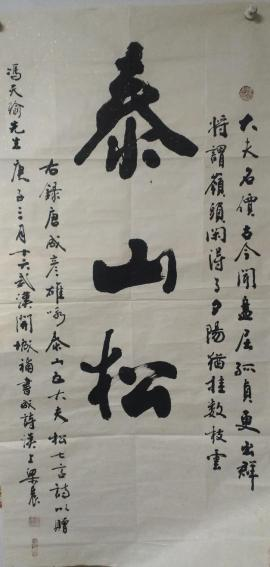 大夫名價古今聞盤屈孤貞更出群
將謂嶺頭閑得了夕陽猶挂數枝雲
泰山松
右錄唐成彦雄咏泰山五大夫松七言詩以贈
馮天瑜先生庚子三月十六武漢開城書成詩漢上梁晨